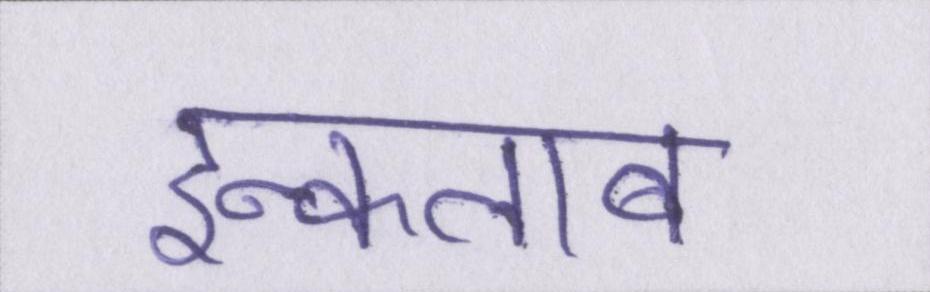 इन्कलाब